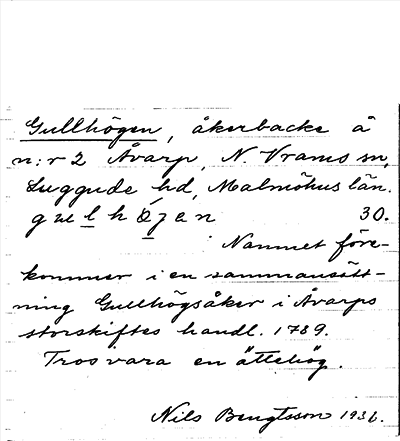 Gullhögen, åkerbacke å
n:r 2 Åvarp, N. Vrams sn,
Luggude hd, Malmöhus län.
gu l h ö j ø n 30.
Namnet före-
kommer i en sammansätt-
ning Gullhögsåker i Åvarps
storskiftes handl. 1789.
Tros vara en ättehög.
Nils Bengtsson 1936.